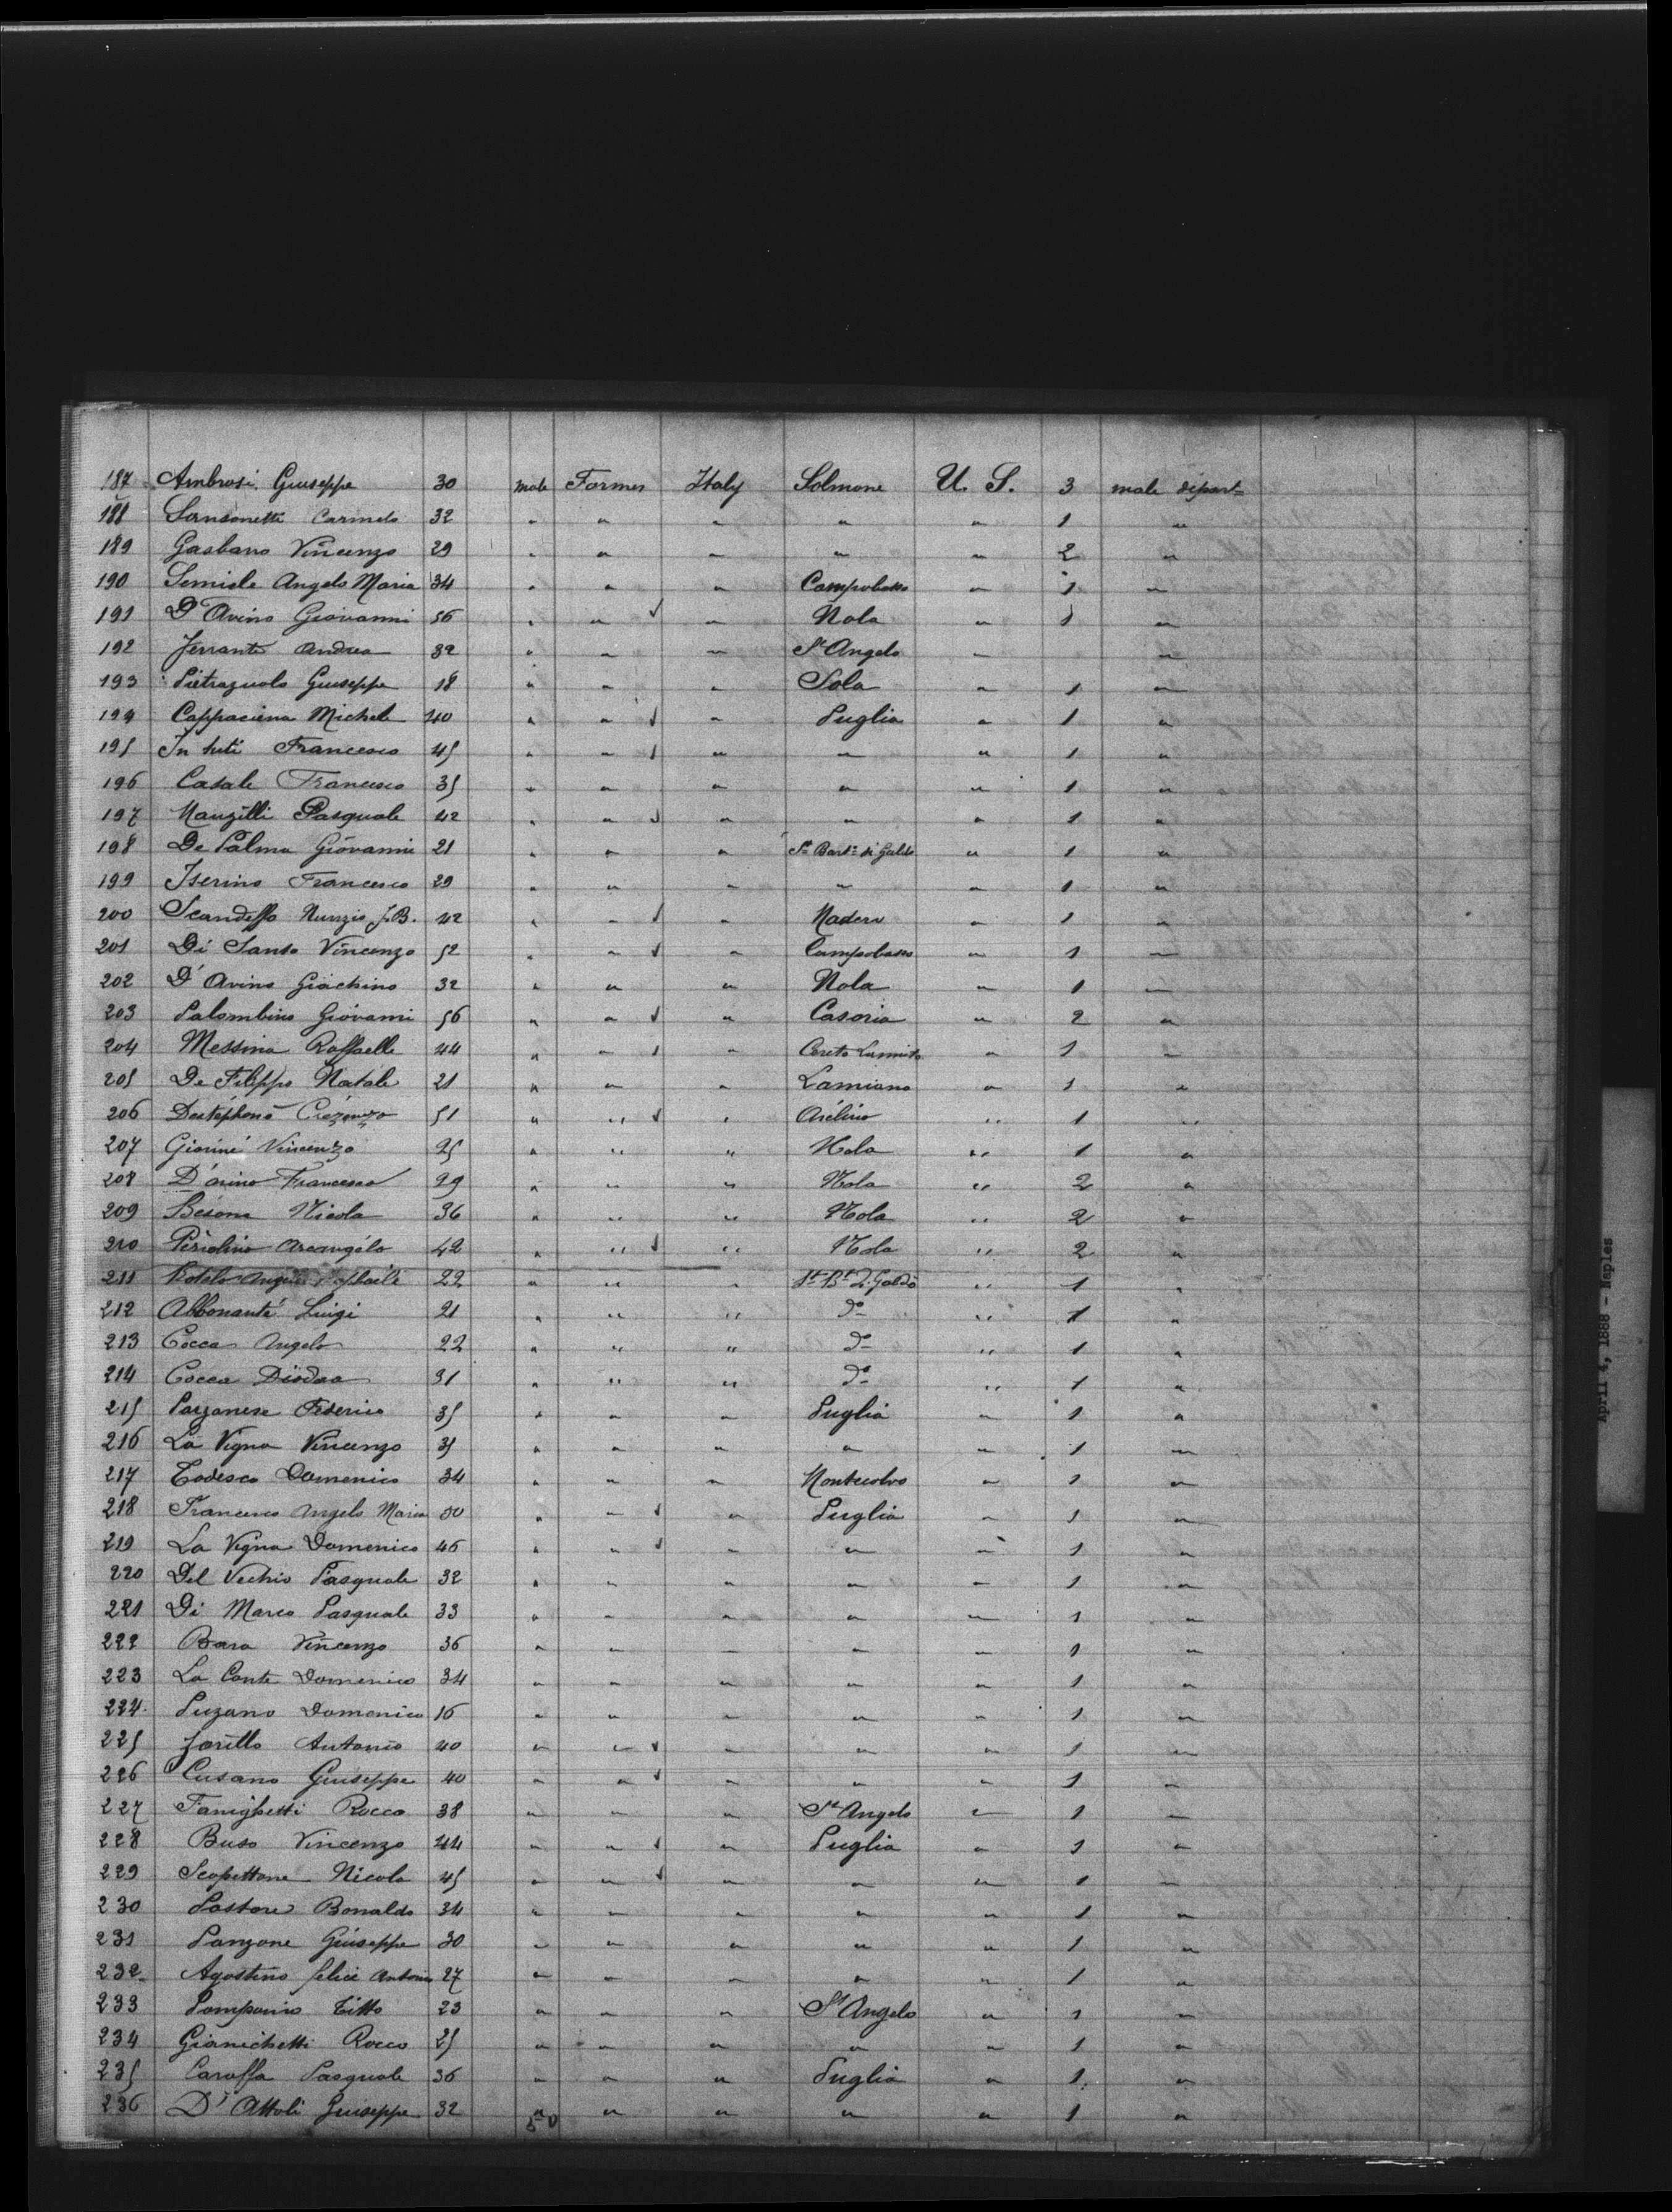 187 Ambrosi Giuseppe 30 male Farmer Italy Solmone U. S. 3 male depart=
188 Sansonetti Carmelo 32 " " " " " 1 "
189 Gasbano Vincenzo 29 " " " " " 2 "
190 Semiele Angelo Maria 34 " " " Campobasso " 1 "
191 D'Avino Giovanni 56 " " ✓ " Nola " 1 "
192 Ferrante Andrea 32 " " " St Angelo " "
193 Pietraquolo Giuseppe 18 " " " Sola " 1 "
194 Cappaciena Michele 40 " " ✓ " Puglia " 1 "
195 In tuti Francesco 45 " " ✓ " " " 1 "
196 Casale Francesco 35 " " " " " 1 "
197 Manzilli Pasquale 42 " " ✓ " " " 1 "
198 De Palma Giovanni 21 " " " Sn Barto di Galdo " 1 "
199 Iserino Francesco 29 " " " " " 1 "
200 Nunzio J.B. 42 " " ✓ " Madera " 1 "
201 Di Santo Vincenzo 52 " " ✓ " Campobasso " 1 "
202 D'Avino Giachino 32 " " " Nola " 1 "
203 Palombino Giovanni 56 " " ✓ " Casoria " 2 "
204 Messina Raffaelle 44 " " ✓ " Cereto " 1 "
205 De Filippo Natale 21 " " " Lamiano " 1 "
206 51 " " ✓ " Avélino " 1 "
207 Vincenzo 25 " " " Nola " 1 "
208 D'avino Francesco 29 " " " Nola " 2 "
209 Nicola 36 " " " Nola " 2 "
210 Piriolino Arcangélo 42 " " ✓ " Nola " 2 "
211 22 " " " St Bt D. Galdo " 1 "
212 Abbonanté Luigi 21 " " " do " 1 "
213 Cocca Angelo 22 " " " do " 1 "
214 Cocca 31 " " " do " 1 "
215 Parzanese Federico 35 " " " Puglia " 1 "
216 La Vigna Vincenzo 35 " " " " " 1 "
217 Todesco Domenico 34 " " " Montecalvo " 1 "
218 Francesco Angelo Maria 50 " " ✓ " Puglia " 1 "
219 La Vigna Domenico 46 " " ✓ " " " 1 "
220 Del Vechio Pasquale 32 " " " " " 1 "
221 Di Marco Pasquale 33 " " " " " 1 "
222 Bara Vincenzo 36 " " " " " 1 "
223 La Conte Domenico 34 " " " " " 1 "
224 Puzano Domenico 16 " " " " " 1 "
225 Jorillo Antonio 40 " " ✓ " " " 1 "
226 Cusano Giuseppe 40 " " ✓ " " " 1 "
227 Fanighetti Rocco 38 " " " St Angelo " 1 "
228 Buso Vincenzo 44 " " ✓ " Puglia " 1 "
229 Scopettone Nicola 45 " " ✓ " " " 1 "
230 Pastore Bonaldo 34 " " " " " 1 "
231 Panzone Giuseppe 30 " " " " " 1 "
232 Agostino felice Antonio 27 " " " " " 1 "
233 Pomponio Titto 23 " " " St Angelo " 1 "
234 Gianichetti Rocco 25 " " " " " 1 "
235 Caroffa Pasquale 36 " " " Puglia " 1 "
236 D'Attoli Giuseppe 32 " " " " " 1 "
50
April 4, 1888 - Naples